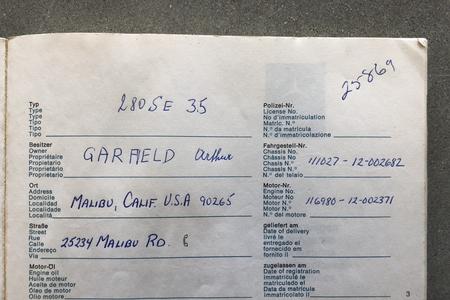 25869
Typ
Type
Type
Tipo
Tipo
280SE 3.5
Polizei-Nr.
License No.
No d'immatriculation
Matric. N.º
N.º da matricula
N.º d'immatricolazione
Besitzer
Owner
Propriétaire
Propietario
Proprietário
Proprietario
GARFIELD Arthur
Fahrgestell-Nr.
Chassis No.
Châssis No
Chasis N.º
Chassis N.º
N.º del telaio
111027-12-002682
Ort
Address
Domicile
Localidad
Localidade
Località
MALIBU, CALIF. U.S.A 90265
Motor-Nr.
Engine No.
Moteur No
Motor N.º
Motor N.º
N.º del motore
116980-12-002371
Straße
Street
Rue
Calle
Endereço
Via
25234 MALIBU RD.
geliefert am
Date of delivery
livré le
entregado el
fornecido em
fornito il
Motor-Öl
Engine oil
Huile moteur
Aceite de motor
Óleo de motor
Olio motore
zugelassen am
Date of registration
immatriculé le
matriculado el
Data de matricula
immatricolato il
3